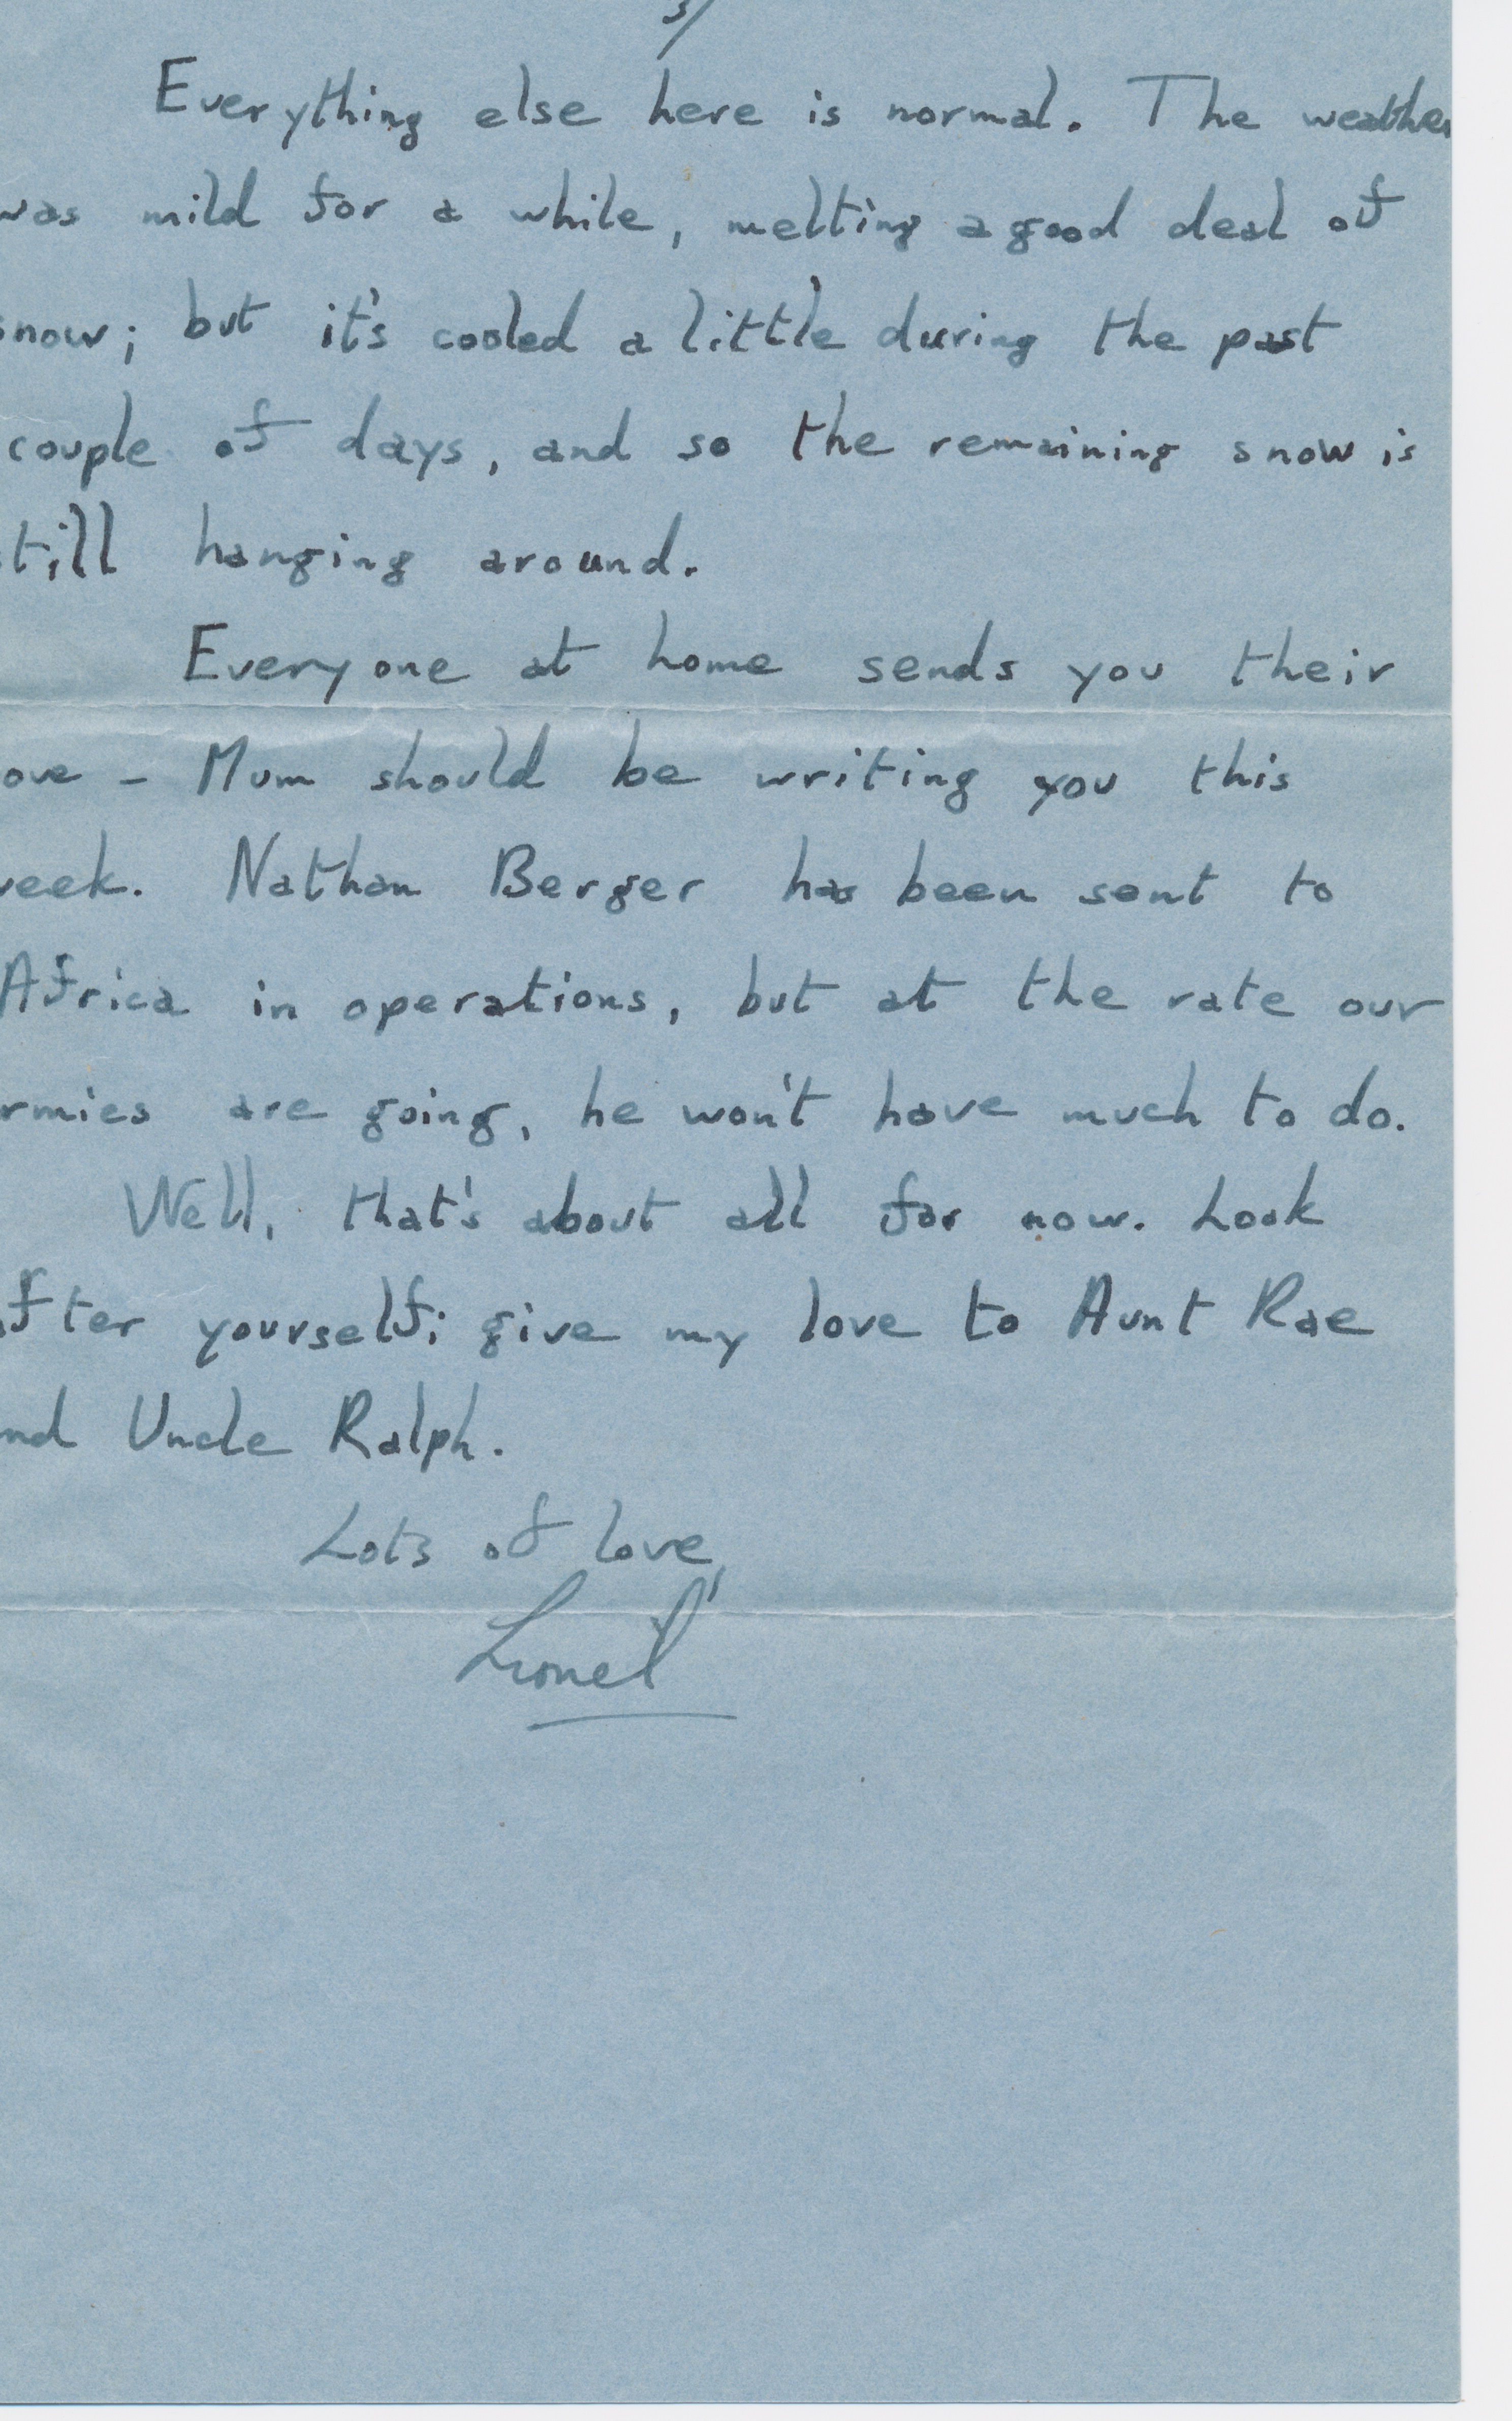 3/
Everything else here is normal. The weather
was mild for a while, melting a good deal of
snow; but it's cooled a little during the past
couple of days, and so the remaining snow is
till hanging around.
Everyone at home sends you their
ove - Mum should be writing you this
week. Nathan Berger has been sent to
Africa in operations, but at the rate our
rmies are going, he won't have much to do.
Well, that's about all for now. Look
after yourself; give my love to Aunt Rae
nd Uncle Ralph.
Lots of love,
Lionel